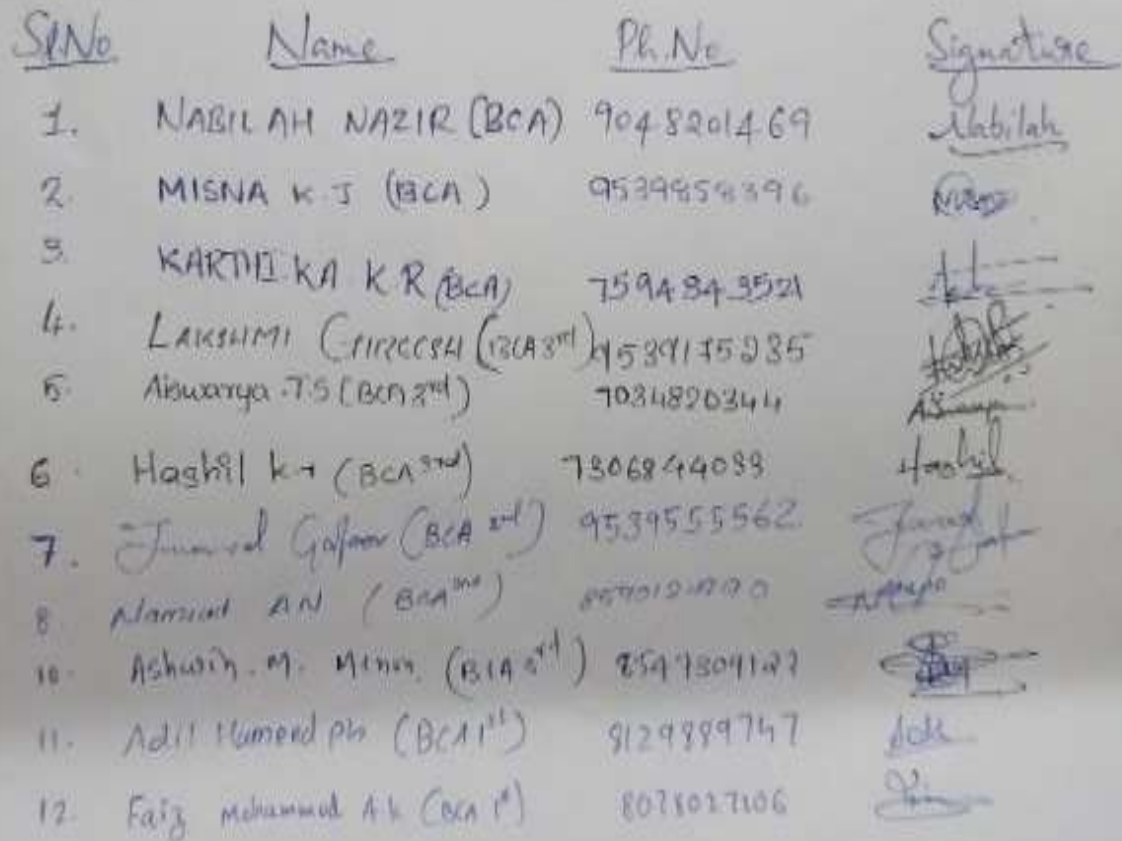 Sl.No Name Ph.No Signature
1. NABILAH NAZIR (BCA) 9048201469 Nabilah
2. MISNA K.J (BCA) 9539858396
3. KARTHIKA K R (BCA) 7594843521
4. LAKSHMI GIREESH (BCA 3rd) 9539175235
5. Aiswarya .T.S (BCA 3rd) 7034820344
6. Hashil k (BCA 3rd) 7306844033 Hashil
7. Gafoor (BCA 3rd) 9539555562
8. AN (BCA
10. Ashwin. M. Menon. (BCA 3rd)
11. Adil Hameed Ph (BCA 1st) 8129889747 Adil
12. Faiz Mohammed A k (BCA 1st)